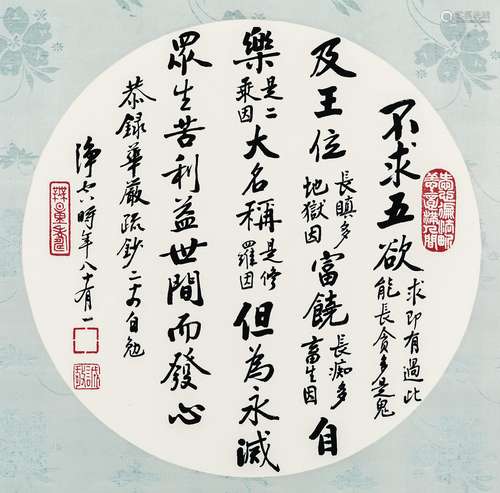 不求五欲 求即有過此
能長貪多是鬼
及王位 長瞋多
地獄因 富饒 長痴多
畜生因 自
樂 是二
乘因 大名稱 是修
羅因 但為永滅
眾生苦利益世間而發心
恭錄華嚴疏鈔 自勉
淨空時年八十有一